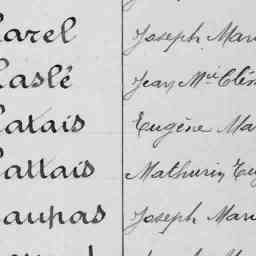 arel Joseph Mari
aslé Jean Mie Clém
atais Eugène Ma
attais Mathurin Eug
aupas Joseph Mari